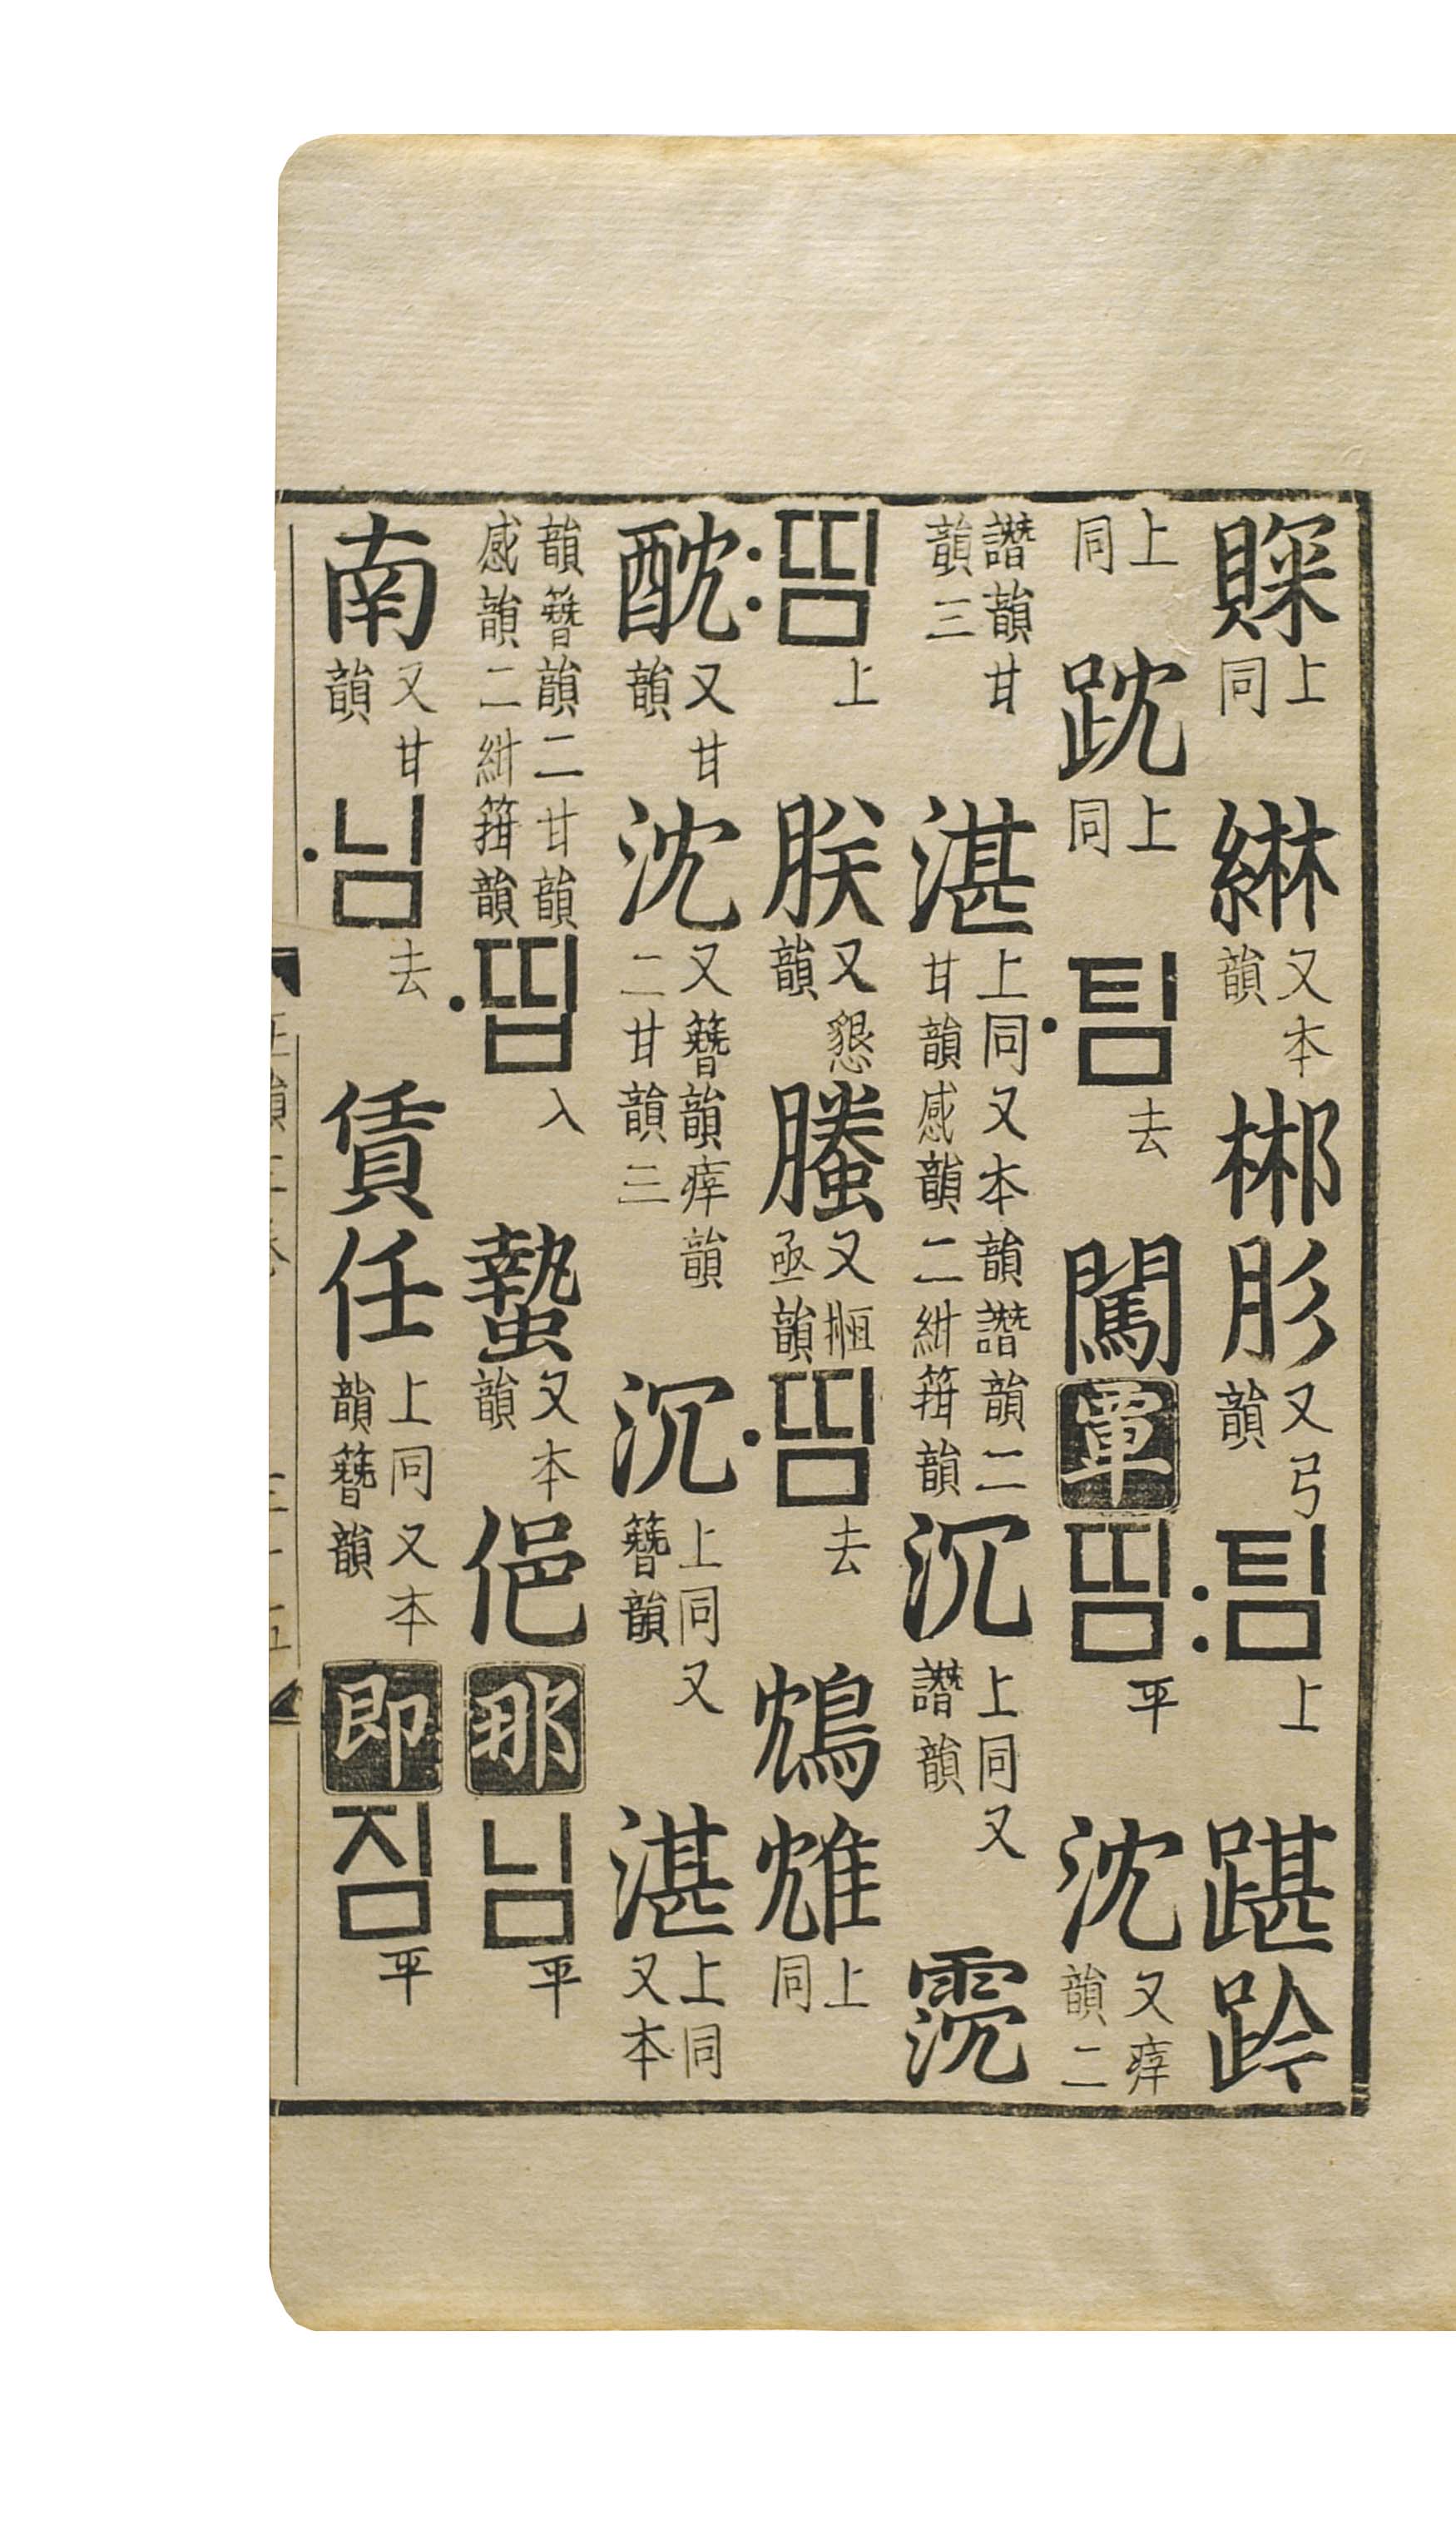 賝上同綝又本韻郴肜又弓韻팀上踸跉
上同踸上同팀去闖覃띰平沈又瘁韻二
譖韻甘韻三湛上同又本韻譖韻二甘韻感韻二紺箝韻沉上同又譖韻霃
띰上朕又懇韻螣又搄亟韻띰去鴆䲴上同
酖又甘韻沈又簪韻瘁韻二甘韻三沉上同又簪韻湛上同又本
韻簪韻二甘韻感韻二紺箝韻띱入蟄又本韻俋那님平
南又甘韻님去賃任上同又本韻簪韻即짐平